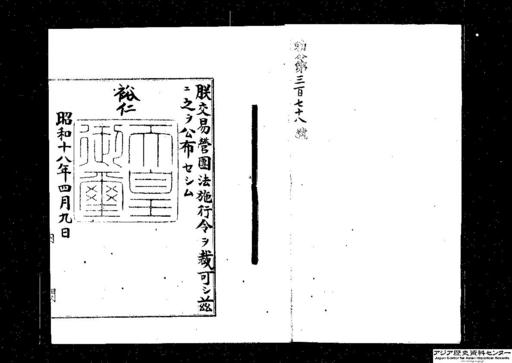 勅令第三百七十八號
朕交易營團法施行令ヲ裁可シ茲
ニ之ヲ公布セシム
裕仁
天皇
御璽
昭和十八年四月九日
アジア歴史資料センター
Japan Center for Asian Historical Records